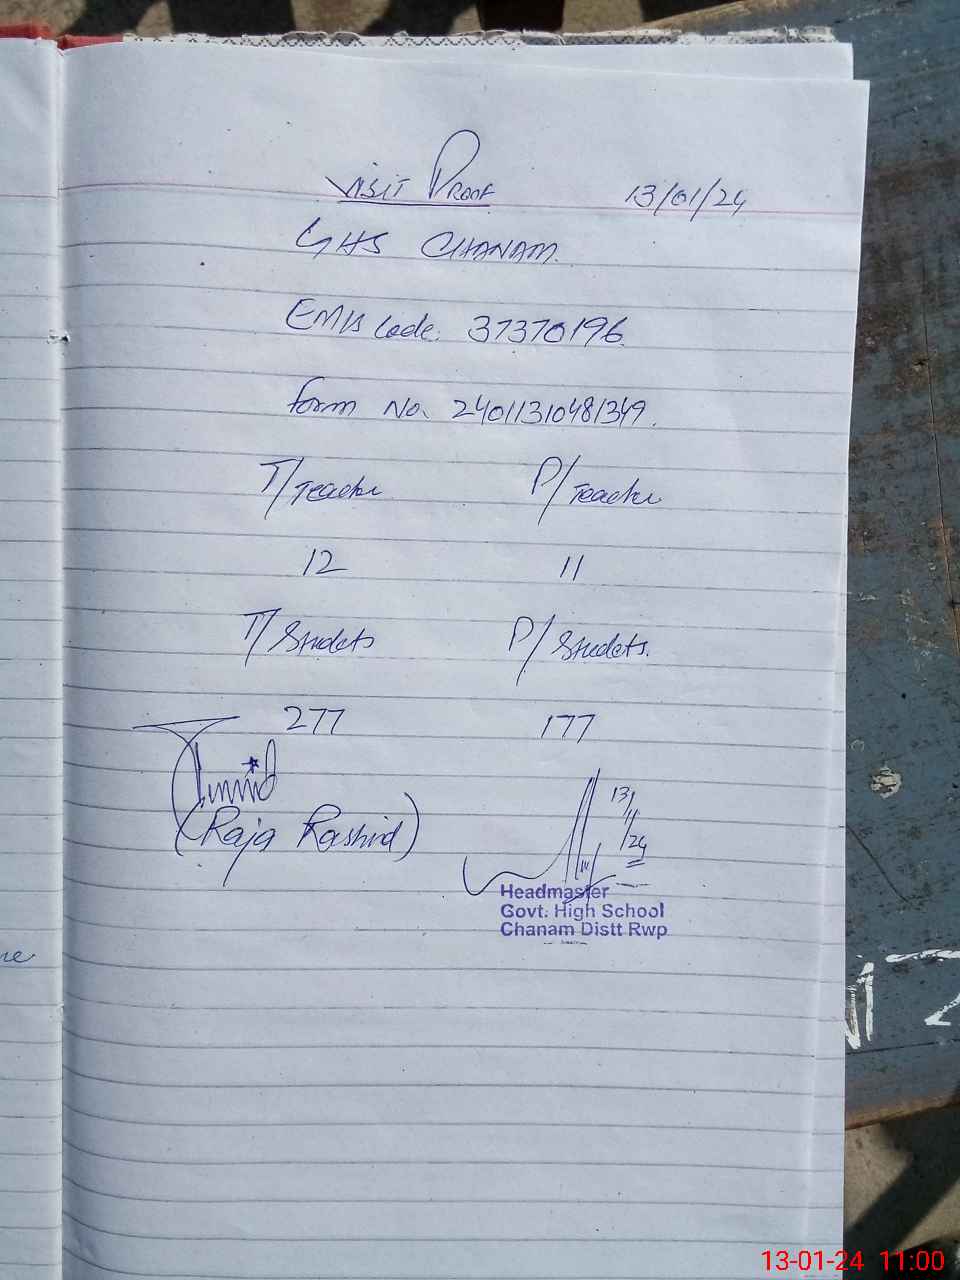 Visit Proof 13/01/24
GHS CHANAM.
EMIS Code: 37370196.
Form No. 24011310481349.
T/Teacher P/Teacher
12 11
T/Studets P/Studets.
277 177
(Raja Rashid)
13/1/24
Headmaster
Govt. High School
Chanam Distt Rwp
13-01-24 11:00